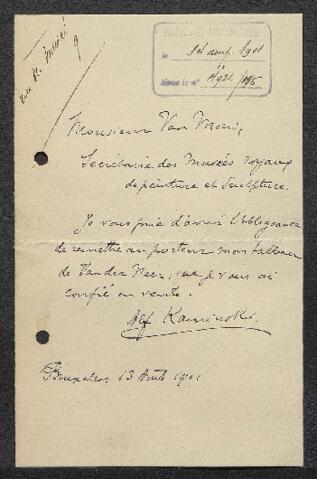 1901
Monsieur Van
Secrétaire des Musées royaux
de peinture et Sculpture.
Je vous prie d'avoir l'obligeance
de remettre au porteur mon tableau
de Van der Neer, que je vous ai
confié en vente.
Alf Kaminski.
Bruxelles 13 Août 1901